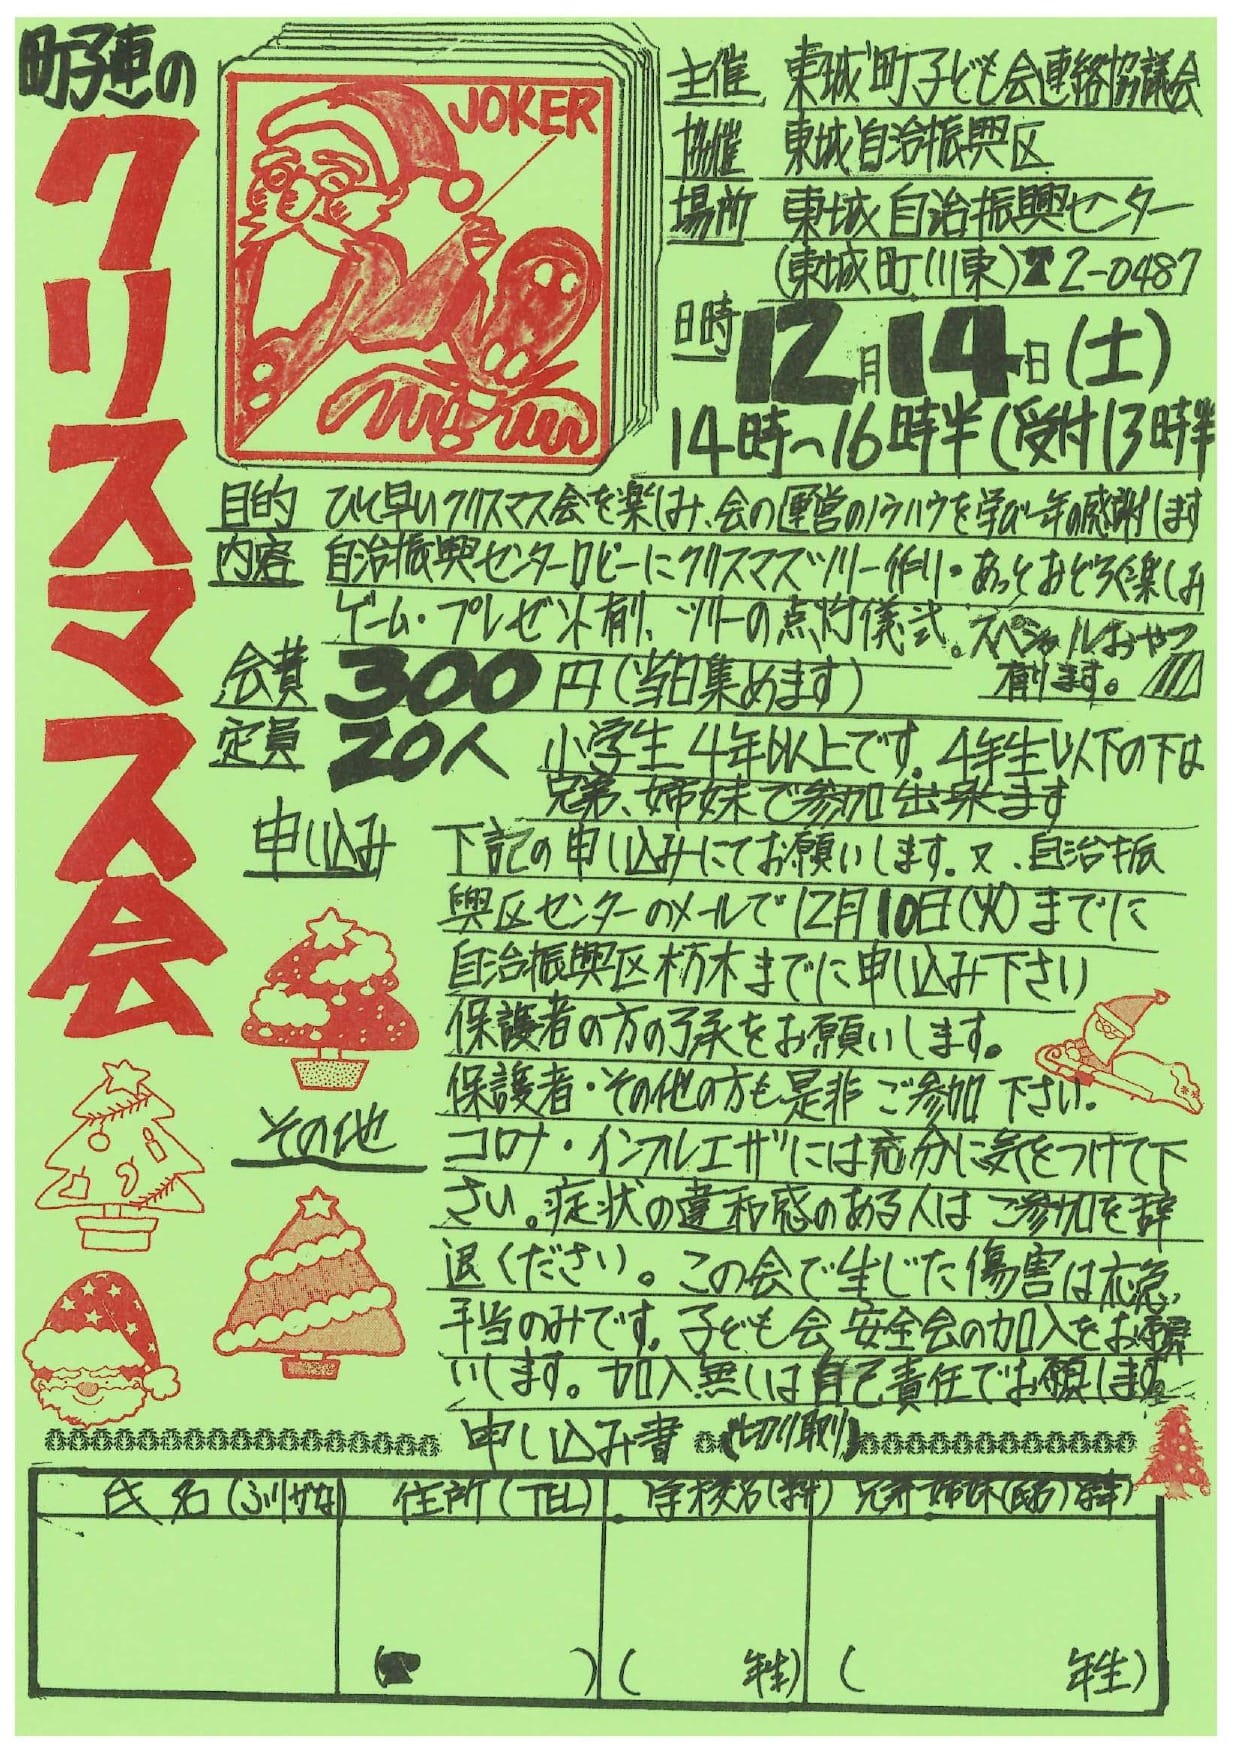 町子連の
クリスマス会
JOKER
主催 東城町子ども会連絡協議会
協催 東城自治振興区
場所 東城自治振興センター
(東城町川東)☎2-0487
日時 12月14日(土)
14時〜16時半(受付13時半
目的 ひと早いクリスマス会を楽しみ、会の運営のノウハウを学び一年の感謝します
内容 自治振興センターロビーにクリスマスツリー作り・あっとおどろく楽しみ
ゲーム・プレゼント有り、ツリーの点灯儀式。スペシャルおやつ
有ります。
会費 300円(当日集めます)
定員 20人 小学生4年以上です。4年生以下の下は
兄弟、姉妹で参加出来ます
申し込み 下記の申し込みにてお願いします。又、自治振
興区センターのメールで12月10日(火)までに
自治振興区栃木までに申し込み下さい
保護者の方の了承をお願いします。
保護者・その他の方も是非ご参加下さい。
その他 コロナ・インフルエザには充分に気をつけて下
さい。症状の違和感のある人はご参加を辞
退ください。この会で生じた傷害は応急
手当のみです。子ども会安全会の加入をお願
いします。加入無しは自己責任でお願します。
申し込み書 (切り取り)
氏名(ふりがな) 住所(TEL) 学校名(学年) 兄弟姉妹(氏名)(学年)
(☎ ) ( 年生) ( 年生)